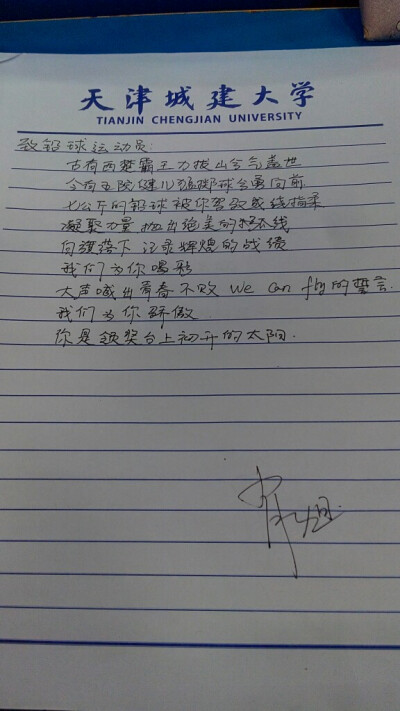 天津城建大学
TIANJIN CHENGJIAN UNIVERSITY
致铅球运动员:
古有西楚霸王力拔山兮气盖世
今有五院健儿强掷球兮勇向前
七公斤的铅球被你驾驭成绕指柔
凝聚力量 抛出绝美的弧线
白旗落下 记录辉煌的战绩
我们为你喝彩
大声喊出青春不败 We can fly 的誓言.
我们为你骄傲
你是领奖台上初升的太阳.